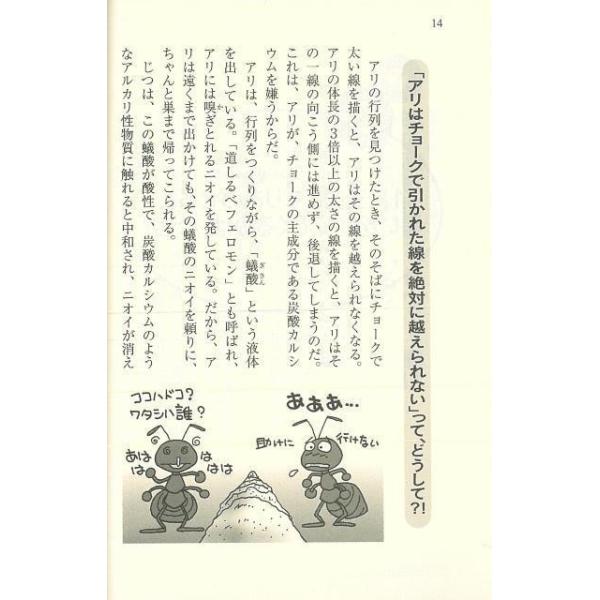 14
「アリはチョークで引かれた線を絶対に越えられない」って、どうして?!
アリの行列を見つけたとき、そのそばにチョークで
太い線を描くと、アリはその線を越えられなくなる。
アリの体長の3倍以上の太さの線を描くと、アリはそ
の一線の向こう側には進めず、後退してしまうのだ。
これは、アリが、チョークの主成分である炭酸カルシ
ウムを嫌うからだ。
アリは、行列をつくりながら、「蟻酸」という液体
ぎさん
を出している。「道しるべフェロモン」とも呼ばれ、
アリには嗅ぎとれるニオイを発している。だから、ア
か
リは遠くまで出かけても、その蟻酸のニオイを頼りに、
ちゃんと巣まで帰ってこられる。
じつは、この蟻酸が酸性で、炭酸カルシウムのよう
なアルカリ性物質に触れると中和され、ニオイが消え
あぁぁ…
助けに
行けない
ココハドコ?
ワタシハ誰?
あは
は
は
はは